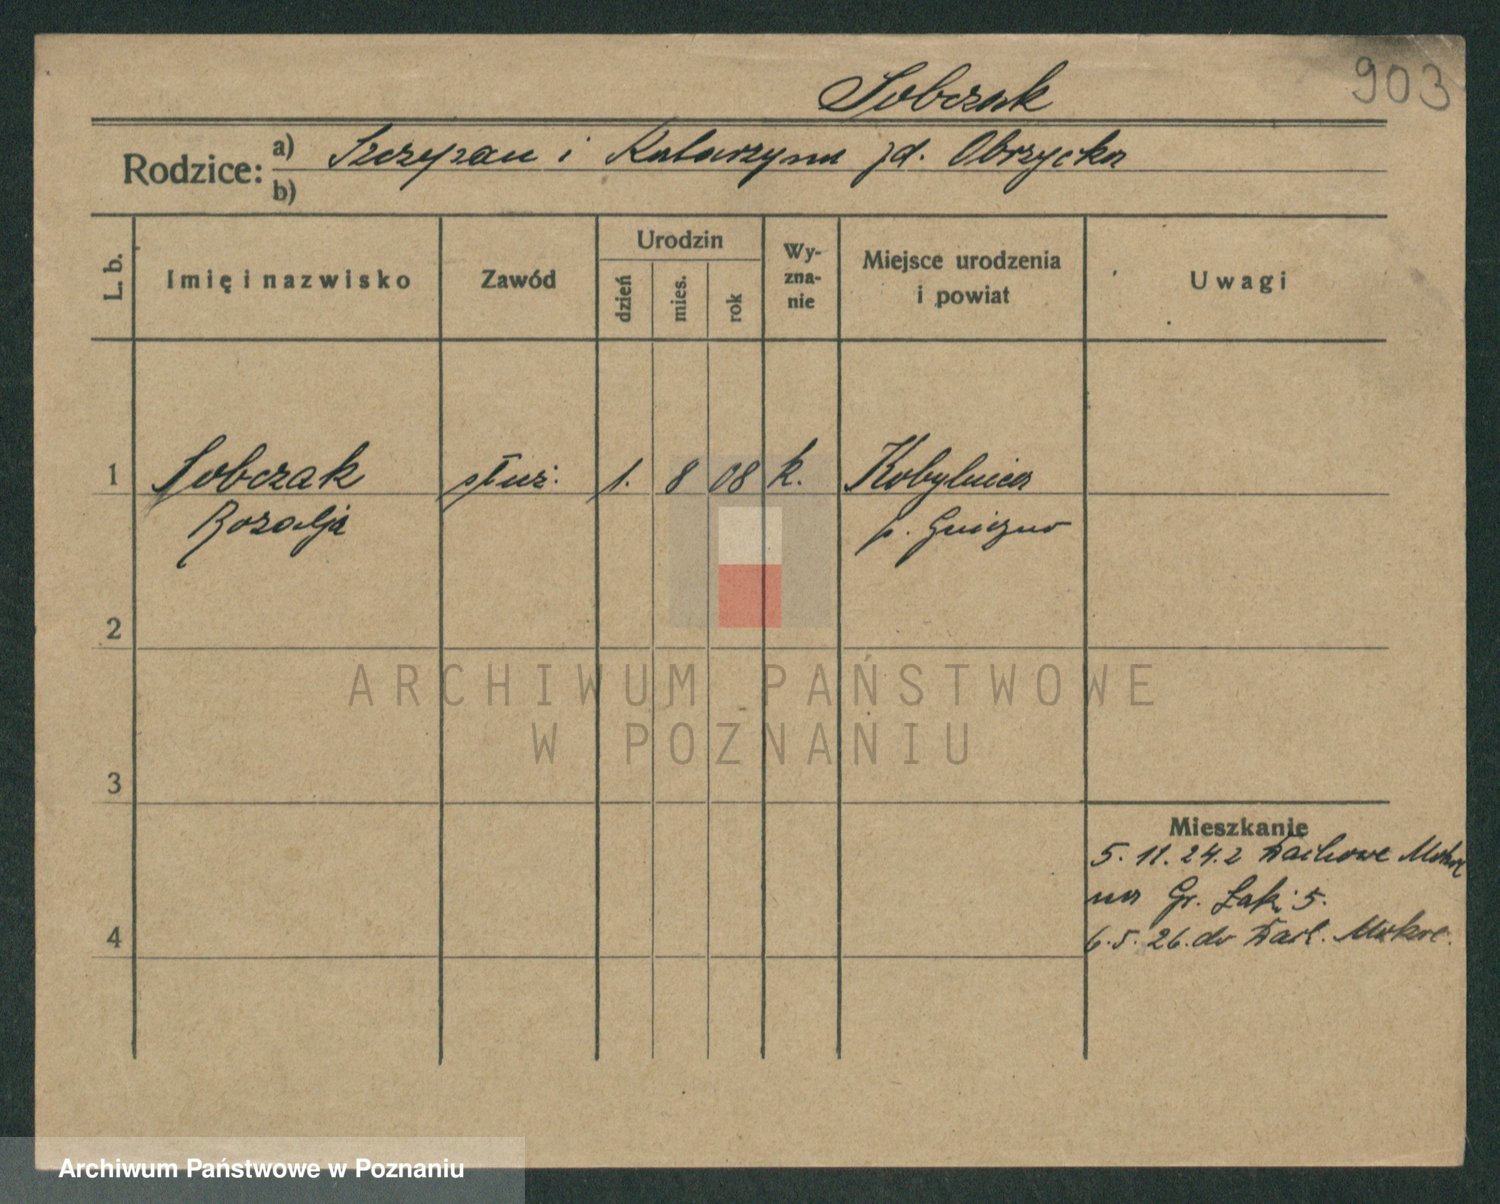 Sobczak
903
Rodzice:
a) Szczepan i Katarzyna zd. Obrzycka
b)
L. b.
Imię i nazwisko
Zawód
Urodzin
dzień
mies.
rok
Wy-
zna-
nie
Miejsce urodzenia
i powiat
Uwagi
1 Sobczak służ. 1. 8 08 k. Kobylnica
Rozalja p. Gniezno
2
ARCHIWUM PAŃSTWOWE
W POZNANIU
3
Mieszkanie
5. 11. 24. z Mokre
na Gr. Łąki 5.
4
6. 5. 26. do Mokre.
Archiwum Państwowe w Poznaniu